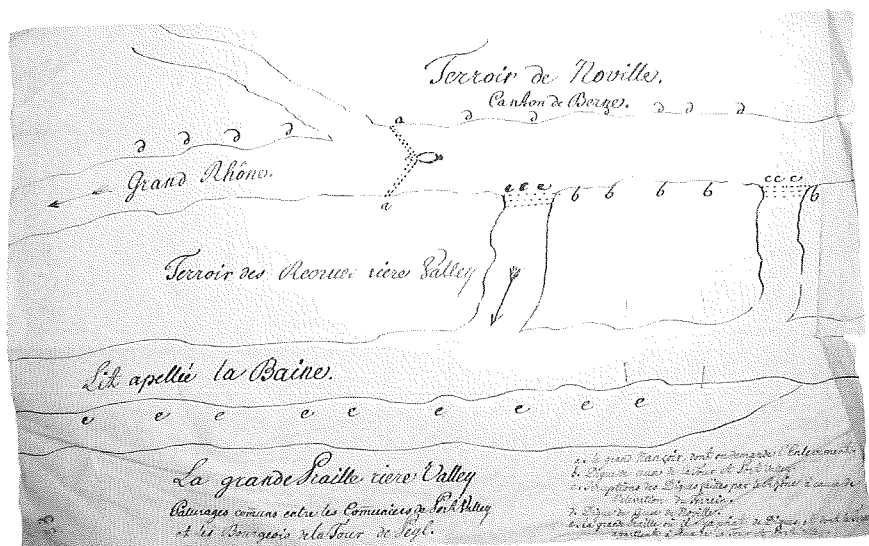 Terroir de Noville.
Canton de Berne.
a
d d d d d
d d d d
Grand Rhône.
a
c c c
b b b b
c c c
b
Terroir des riere Valley
Lit apellée la Baine.
e e e e e e e e e
La grande Praille riere Valley
Paturages comuns entre les Comuniers de Port Valley
et les Bourgeois de la Tour de Peyl.
a. le grand dont on demande l'Enlevement.
b. Digue de la Tour et Port Valley.
c. des Digues faites par le Rhône à cause de
l'élévation du Terrein.
d. Digue de Noville.
e. La grande Praille où il n'y a point de Digues, et dont le